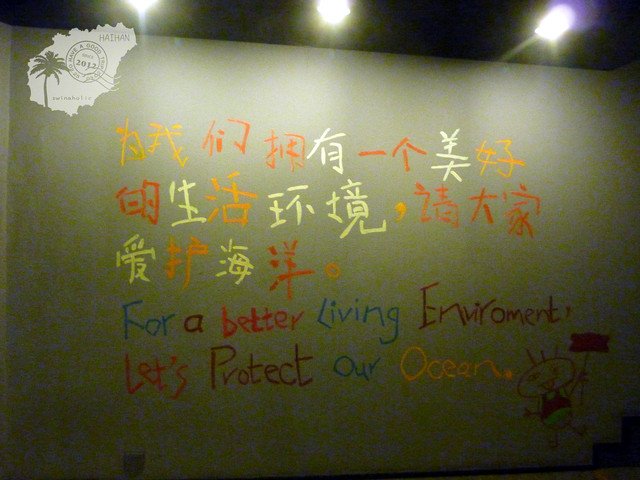 HAIHAN
HAVE A GOOD TIME
SINCE
2012
swinaholic
为我们拥有一个美好
的生活环境,請大家
爱护海洋。
For a better Living Enviroment,
Let's Protect Our Ocean.